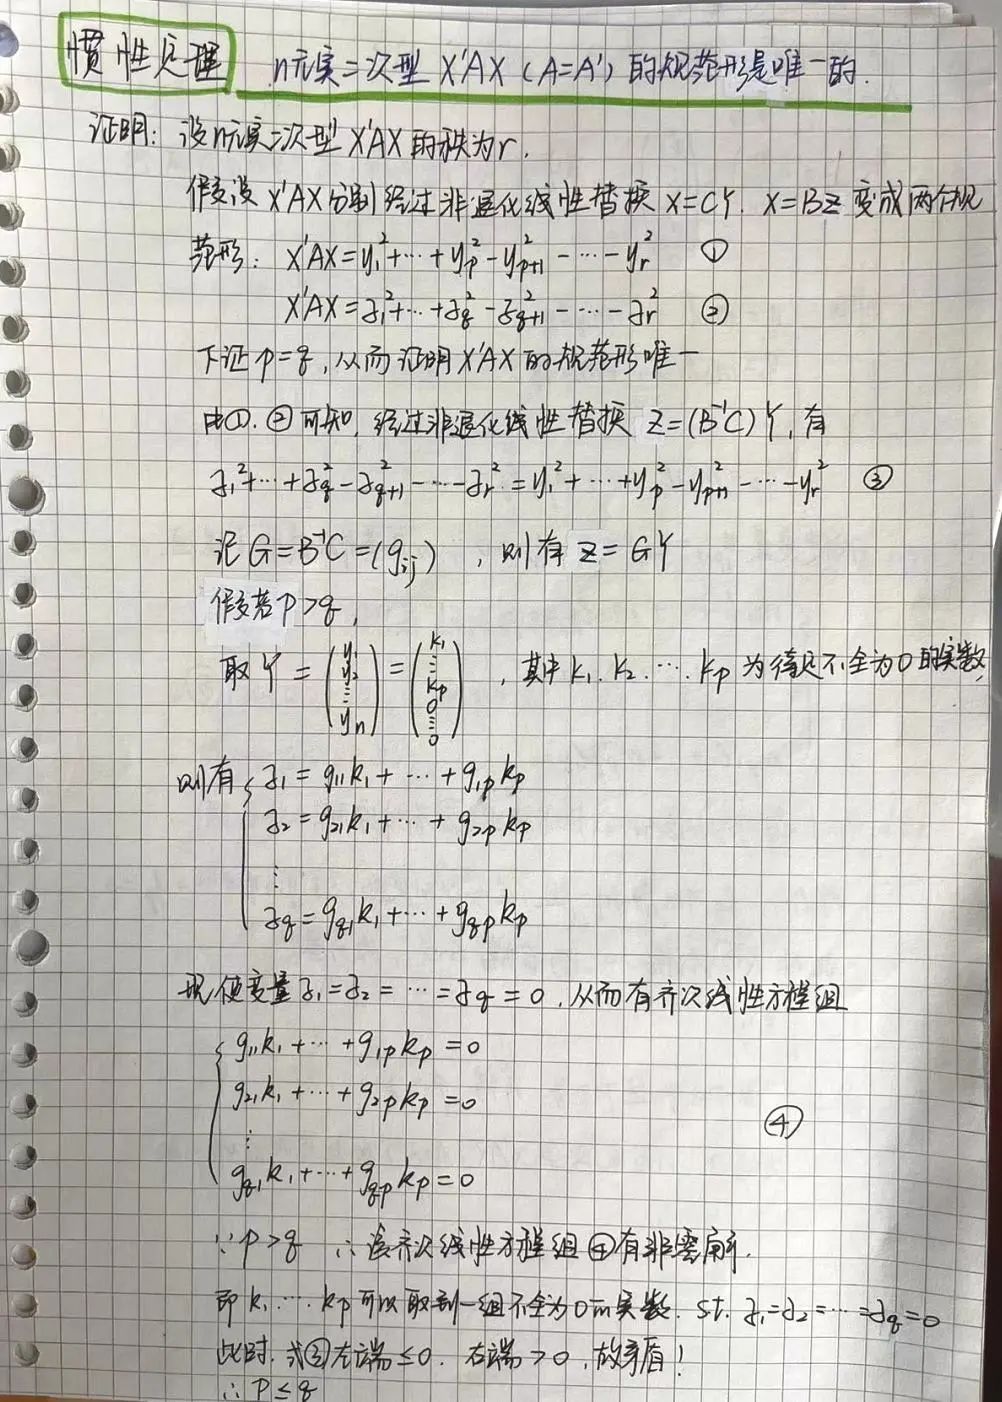 惯性定理 n元实二次型 X'AX (A=A') 的规范形是唯一的.
证明: 设n元实二次型 X'AX 的秩为r.
假设 X'AX 分别经过非退化线性替换 X=CY. X=BZ 变成两个规
范形: X'AX=y₁²+⋯+yₚ²-yₚ₊₁²-⋯-yᵣ² ①
X'AX=z₁²+⋯+z_q²-z_{q+1}²-⋯-zᵣ² ②
下证 p=q, 从而证明 X'AX 的规范形唯一
由①.②可知, 经过非退化线性替换 Z=(B⁻¹C)Y, 有
z₁²+⋯+z_q²-z_{q+1}²-⋯-zᵣ²=y₁²+⋯+yₚ²-yₚ₊₁²-⋯-yᵣ² ③
记 G=B⁻¹C=(g_{ij}), 则有 Z=GY
假若 p>q,
取 Y = (y₁ y₂ ⋮ yₙ) = (k₁ ⋮ kₚ 0 ⋮ 0), 其中 k₁.k₂.⋯.kₚ 为待定不全为0的实数,
则有 { z₁=g₁₁k₁+⋯+g₁ₚkₚ
z₂=g₂₁k₁+⋯+g₂ₚkₚ
⋮
z_q=g_{q1}k₁+⋯+g_{qp}kₚ
现使变量 z₁=z₂=⋯=z_q=0, 从而有齐次线性方程组
{ g₁₁k₁+⋯+g₁ₚkₚ=0
g₂₁k₁+⋯+g₂ₚkₚ=0
④
⋮
g_{q1}k₁+⋯+g_{qp}kₚ=0
∵p>q ∴该齐次线性方程组④有非零解.
即 k₁.⋯.kₚ 可以取到一组不全为0的实数. s.t. z₁=z₂=⋯=z_q=0
此时. 式③左端≤0. 右端>0, 故矛盾!
∴p≤q